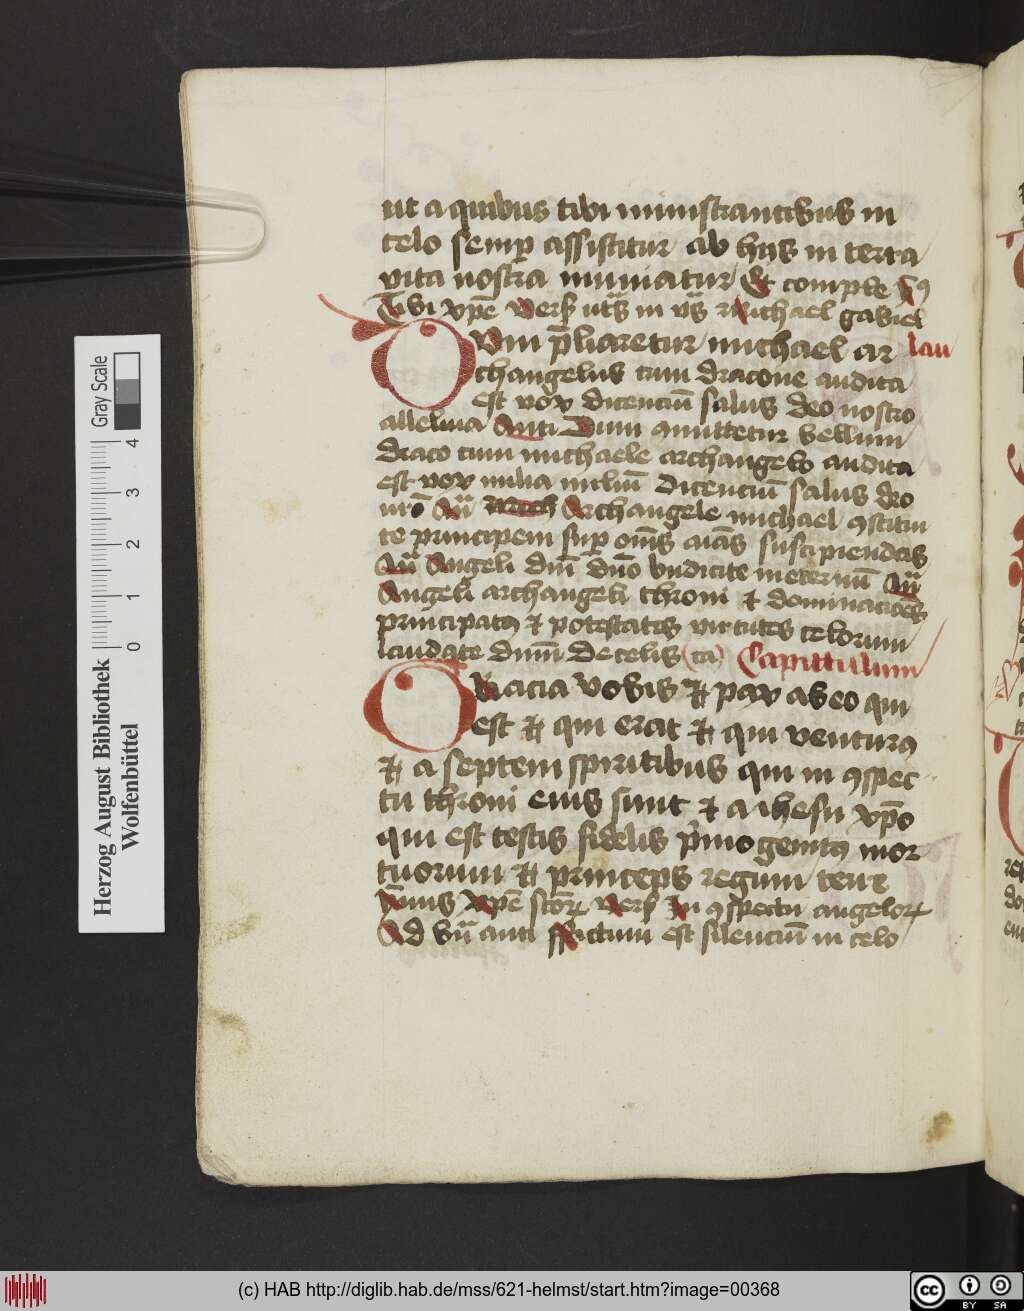 ut a quibus tibi ministrantibus in
celo semp̄ assistitur ab hijs in terra
vita nostra muniatur Et compte
Tibi xp̄e vers̄ ut̄s in v̄s Michael gabriel
Cvm p̄liaretur michael ar lau
changelus cum dracone audita
est vox dicenciū salus deo nostro
alleluia Anti Dum amittetur bellum
draco cum michaele archangelo audita
est vox milia miliū Dicenciū salus deo
nr̄o Añ Archangele michael ꝯstitui
te principem sup̄ om̄s aīas suscipiendas
Añ Angeli dn̄i dn̄o bndicite in eternū Añ
Angeli archangeli throni et dominacōes
principatꝰ et potestates virtutes celorum
laudate dnm̄ De celis Capittulum
Gracia vobis et pax ab eo qui
est et qui erat et qui venturꝰ
et a septem spiritibus qui in ꝯspec
tu throni eius sunt et a ihesu xp̄o
qui est testis fidelis p̄mogenitꝰ mor
tuorum et princeps regum terre
Ymnus Xp̄e sctōꝝ vers̄ In ꝯspectu angeloꝝ
Ad bn̄ anti ffactum est silenciū in celo
Herzog August Bibliothek
Wolfenbüttel
Gray Scale
0 1 2 3 4
(c) HAB http://diglib.hab.de/mss/621-helmst/start.htm?image=00368
cc BY SA